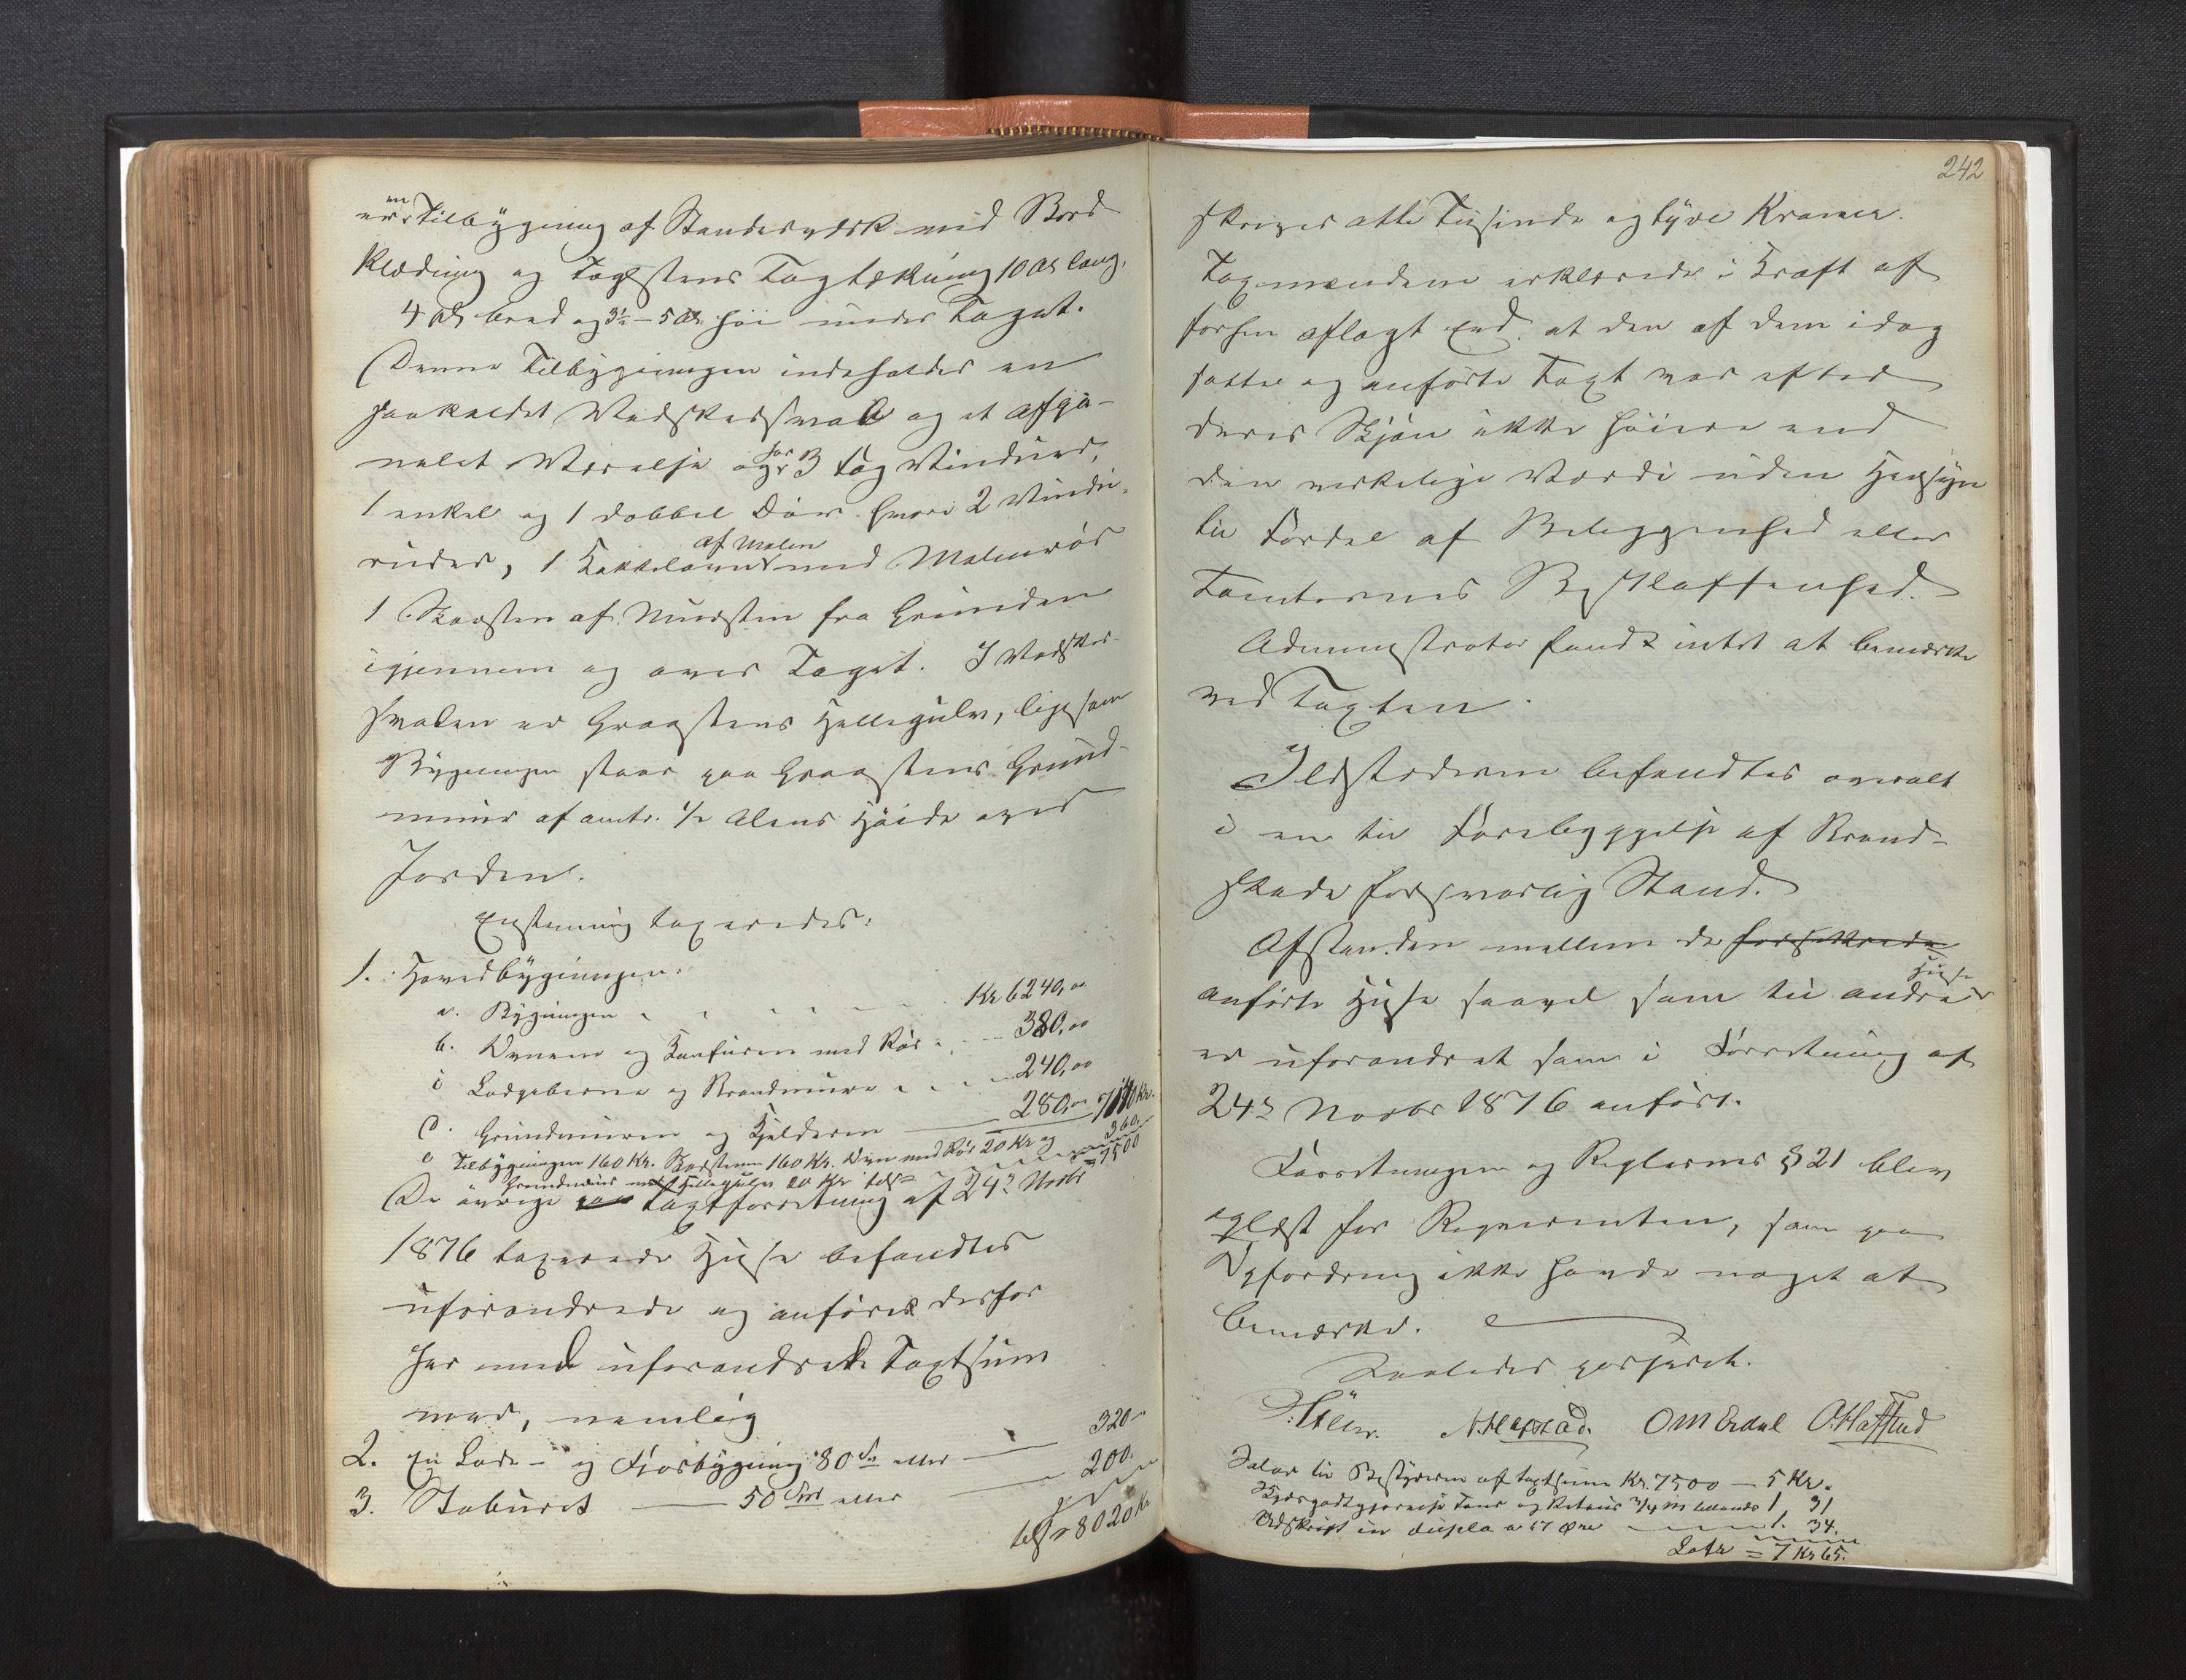 en
er Tilbygning af Standerværk med Bord
Klædning og Taglstens Tagtækning 10 Al lang,
4 Al bred og 3½ - 5 Al. høi under Taget.
Denne Tilbygningen indeholder en
saakaldet Vadskersval og et Afgie-
nelet Værelse og har 3 Fag Vinduer,
1 enkel og 1 dobbel Dør hvori 2 Vindu-
ruder, 1 Kakkelovn af Malm med Malmrør
1 Skorsten af Mursten fra Grunden
igjennem og over Taget. I Vadsker-
svalen er Graastens Hellegulv, ligesom
Bygningen staar paa Graastens Grund-
muur af omtr. ½ Alens Høide over
Jorden.
Enstemmig taxeredes:
1. Hovedbygningen:
a. Bygningen Kr 6240,00
b. Ovnene og Komfuren med Rør 380,00
c Ladepiberne og Brandmuren 240,00
d. Grundmuren og Kjelderen 280,00 7140 Kr.
e Tilbygningen 160 Kr. Skorstenen 160 Kr. Ovn med Rør 20 Kr og 360
Grundmuur med Hellegulv 20 Kr tils = 7500
De øvrige Taxtforretning af 24de Novbr
1876 taxerede Huse befandtes
uforandrede og anføres derfor
her med uforandrede Taxtsum
mer, nemlig
2. En Lade- og Fjøsbygning 80 Sp eller 320
3. Staburet 50 Spd eller 200.
tils = 8020 Kr
242
skriver otte Tusinde og tyve Kroner.
Taxmændene erklærede i Kraft af
forhen aflagt Eed, at den af dem idag
satte og anførte Taxt var efter
deres Skjøn ikke høiere end
den virkelige Værdi uden Hensyn
til Fordel af Beliggenhed eller
Tomternes Beskaffenhed.
Administrator fandt intet at bemærke
ved Taxten.
Ildstederne befandtes overalt
i en til Forebyggelse af Brand-
skade forsvarlig Stand.
Afstanden mellem de forsikrede
anførte Huse saavel som til andre Huse
er uforandret som i Forretning af
24de Novbr 1876 anført.
Forretningen og Reglernes § 21 blev
oplæst for Rekvirenten, som paa
Opfordring ikke havde noget at
bemærke.
Saaledes passeret.
O M Erdal
Salær til Bestyreren af taxtsum Kr. 7500 - 5 Kr.
Skydsgodtgjørelse Tour og Retour ¾ M tillands 1, 31
Udskrift in duplo a 67 Øre 1. 34.
Latr = 7 Kr 65.